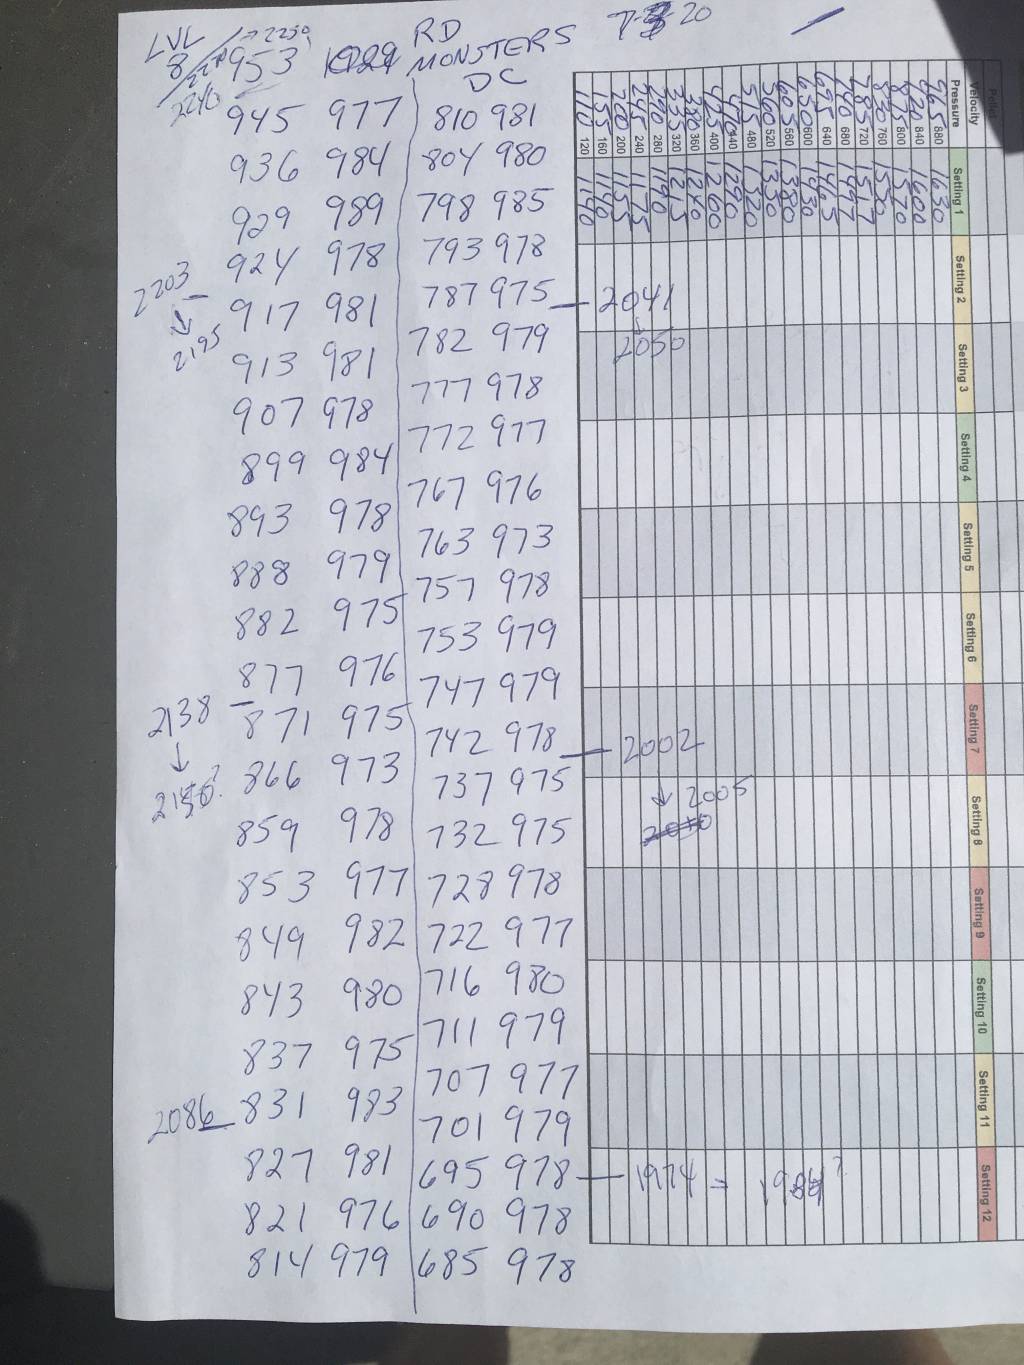 LVL
8
2250
2240
RD
MONSTERS
DC
7-3-20
953
945 977
936 984
929 989
924 978
2203
917 981
2195
913 981
907 978
899 984
893 978
888 979
882 975
877 976
2138
871 975
866 973
859 978
853 977
849 982
843 980
837 975
2086
831 983
827 981
821 976
814 979
810 981
804 980
798 985
793 978
787 975 — 2041
2050
782 979
777 978
772 977
767 976
763 973
757 978
753 979
747 979
742 978 — 2002
2005
737 975
732 975
728 978
722 977
716 980
711 979
707 977
701 979
695 978 — 1974 =
690 978
685 978
Pellet
Velocity
Pressure Setting 1 Setting 2 Setting 3 Setting 4 Setting 5 Setting 6 Setting 7 Setting 8 Setting 9 Setting 10 Setting 11 Setting 12
965 880 1630
920 840 1600
875 800 1570
830 760 1550
785 720 1517
740 680 1497
695 640 1465
650 600 1430
605 560 1380
560 520 1350
515 480 1320
470 440 1290
425 400 1260
380 360 1240
335 320 1215
290 280 1190
245 240 1175
200 200 1155
155 160 1140
110 120 1140